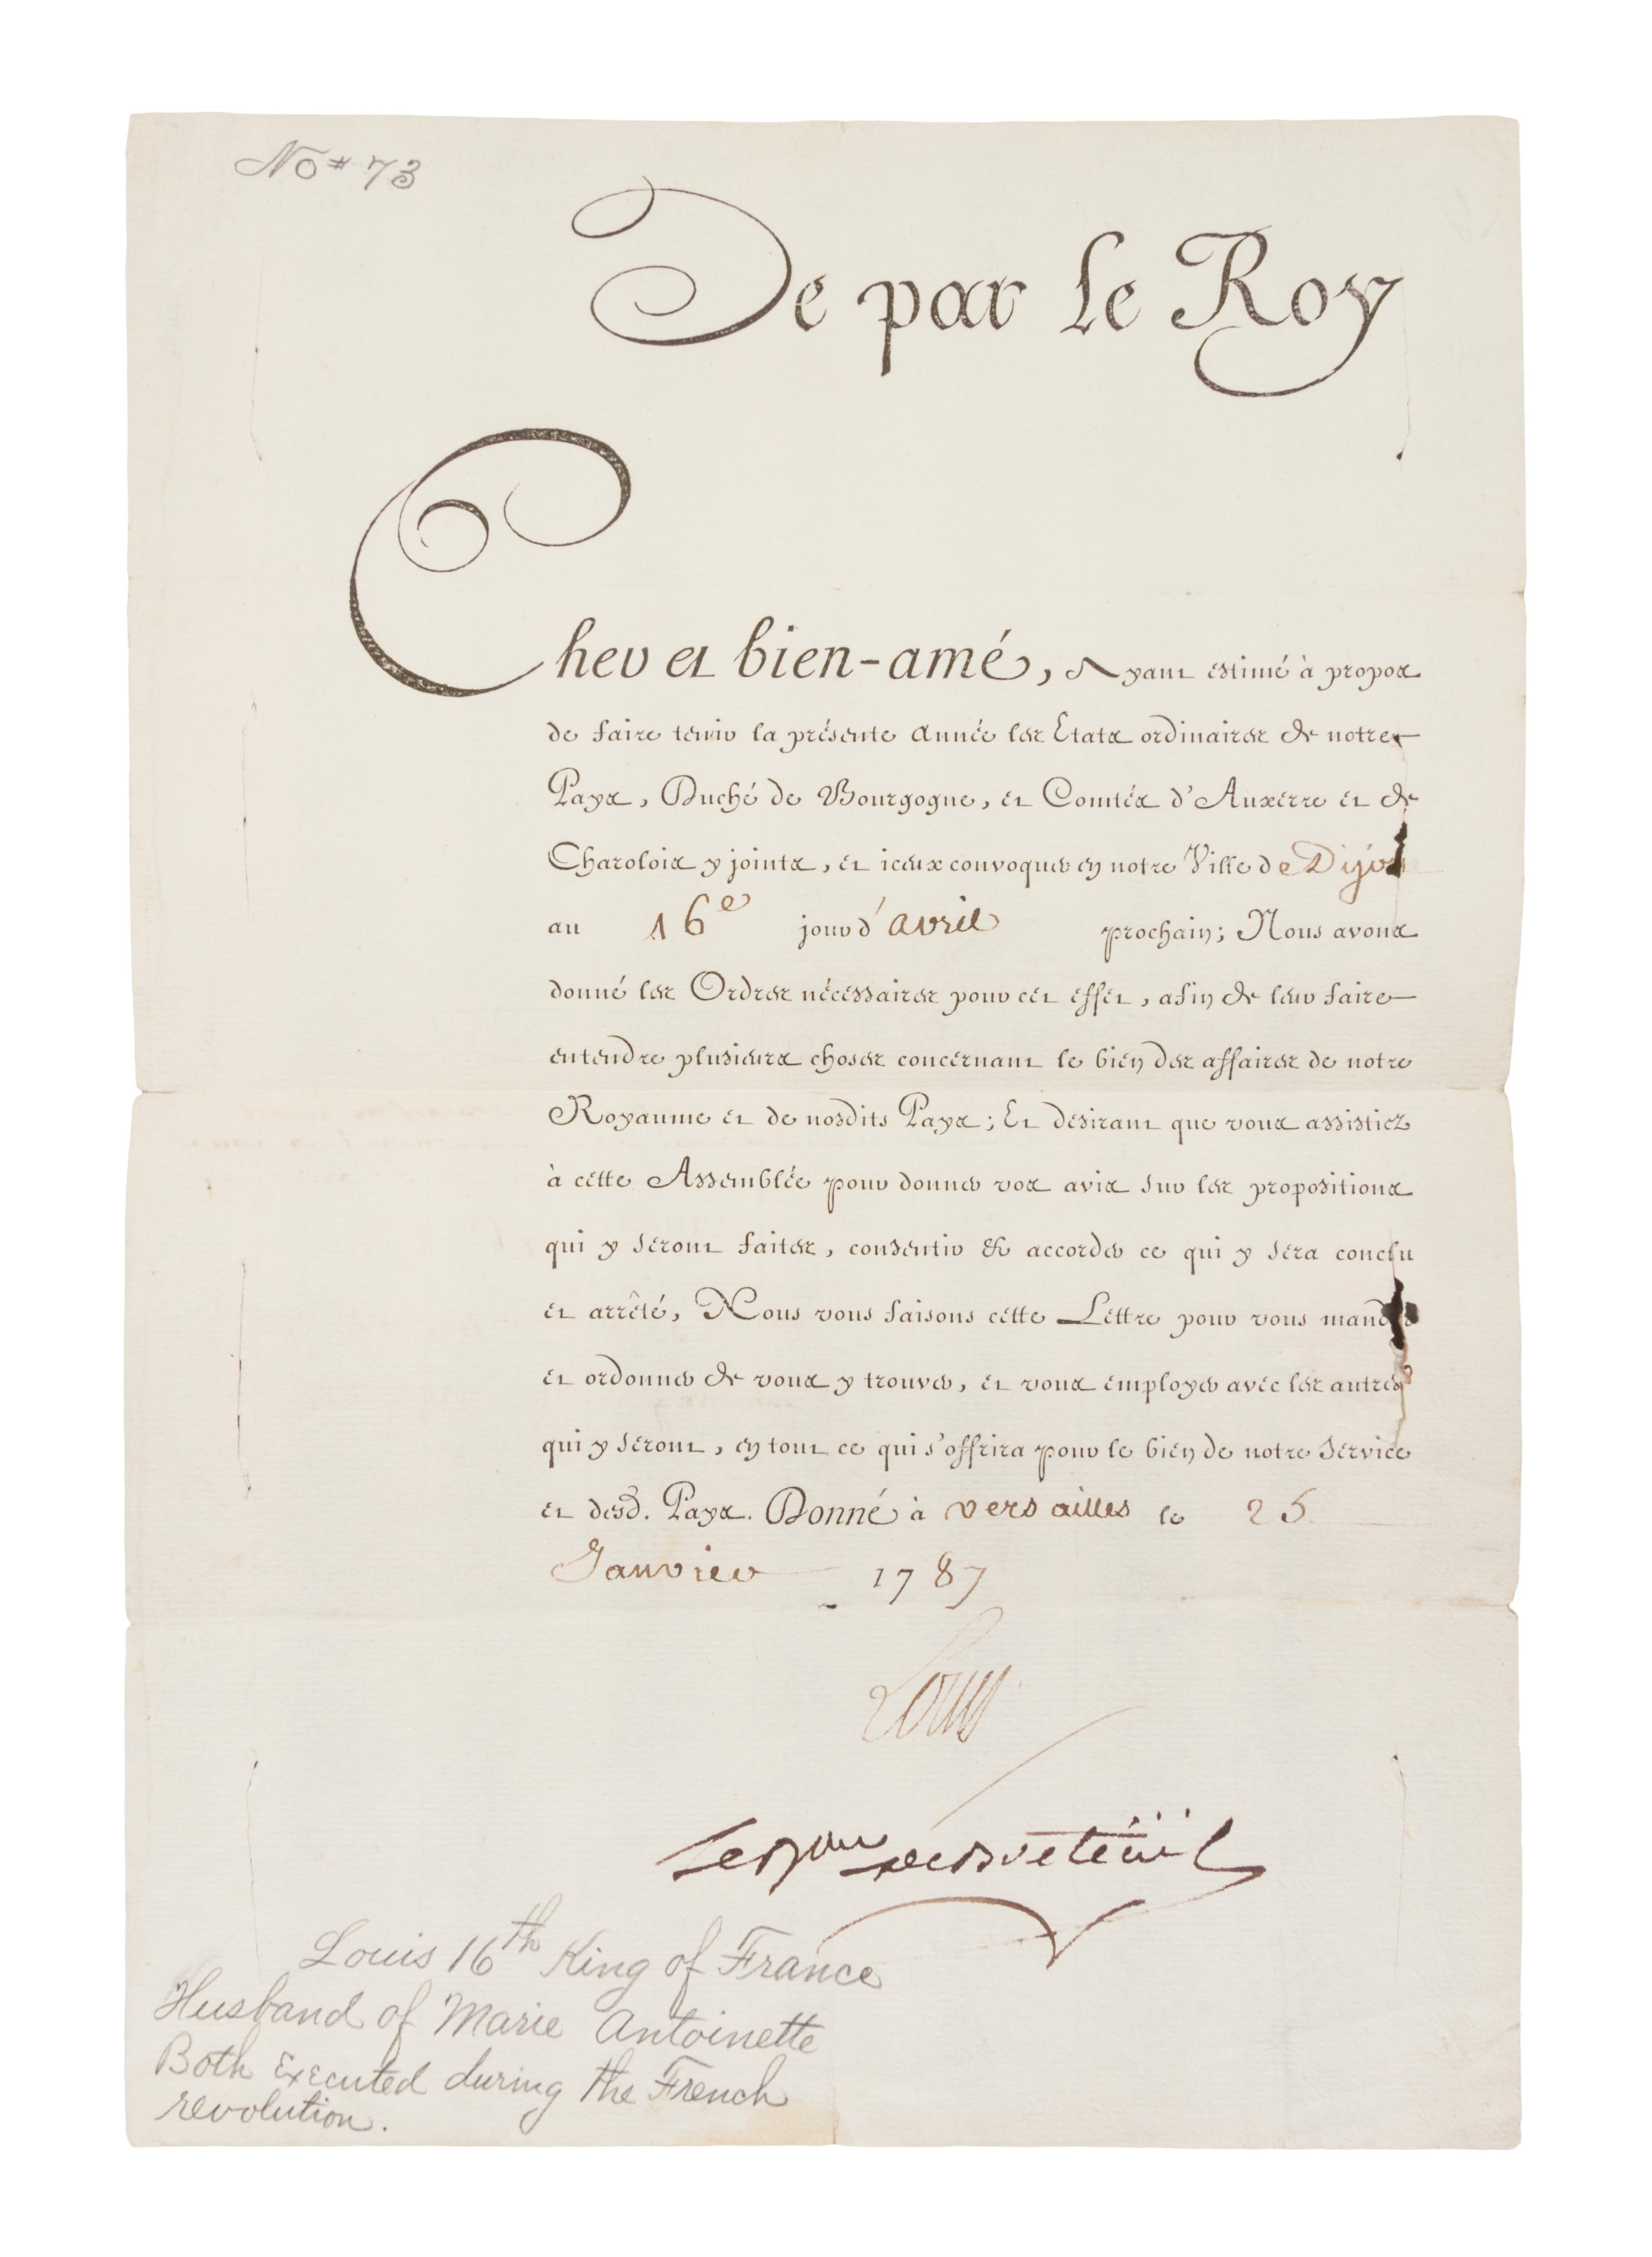 No # 73
De par le Roy
Cher et bien-amé, Ayant estimé à propos
de faire tenir la présente Année les Etats ordinaires de notre
Pays, Duché de Bourgogne, et Comtés d'Auxerre et de
Charolois y joints, et iceux convoquer en notre Ville de Dijon
au 16e jour d'avril prochain; Nous avons
donné les Ordres nécessaires pour cet effet, afin de leur faire
entendre plusieurs choses concernant le bien des affaires de notre
Royaume et de nosdits Pays; Et désirant que vous assistiez
à cette Assemblée pour donner vos avis sur les propositions
qui y seront faites, consentir & accorder ce qui y sera conclu
et arrêté, Nous vous faisons cette Lettre pour vous mander
et ordonner de vous y trouver, et vous employer avec les autres
qui y seront, en tout ce qui s'offrira pour le bien de notre Service
et desd. Pays. Donné à versailles le 25
Janvier 1787
Louis
Le Bon de Breteüil
Louis 16th King of France
Husband of Marie Antoinette
Both Executed during the French
revolution.